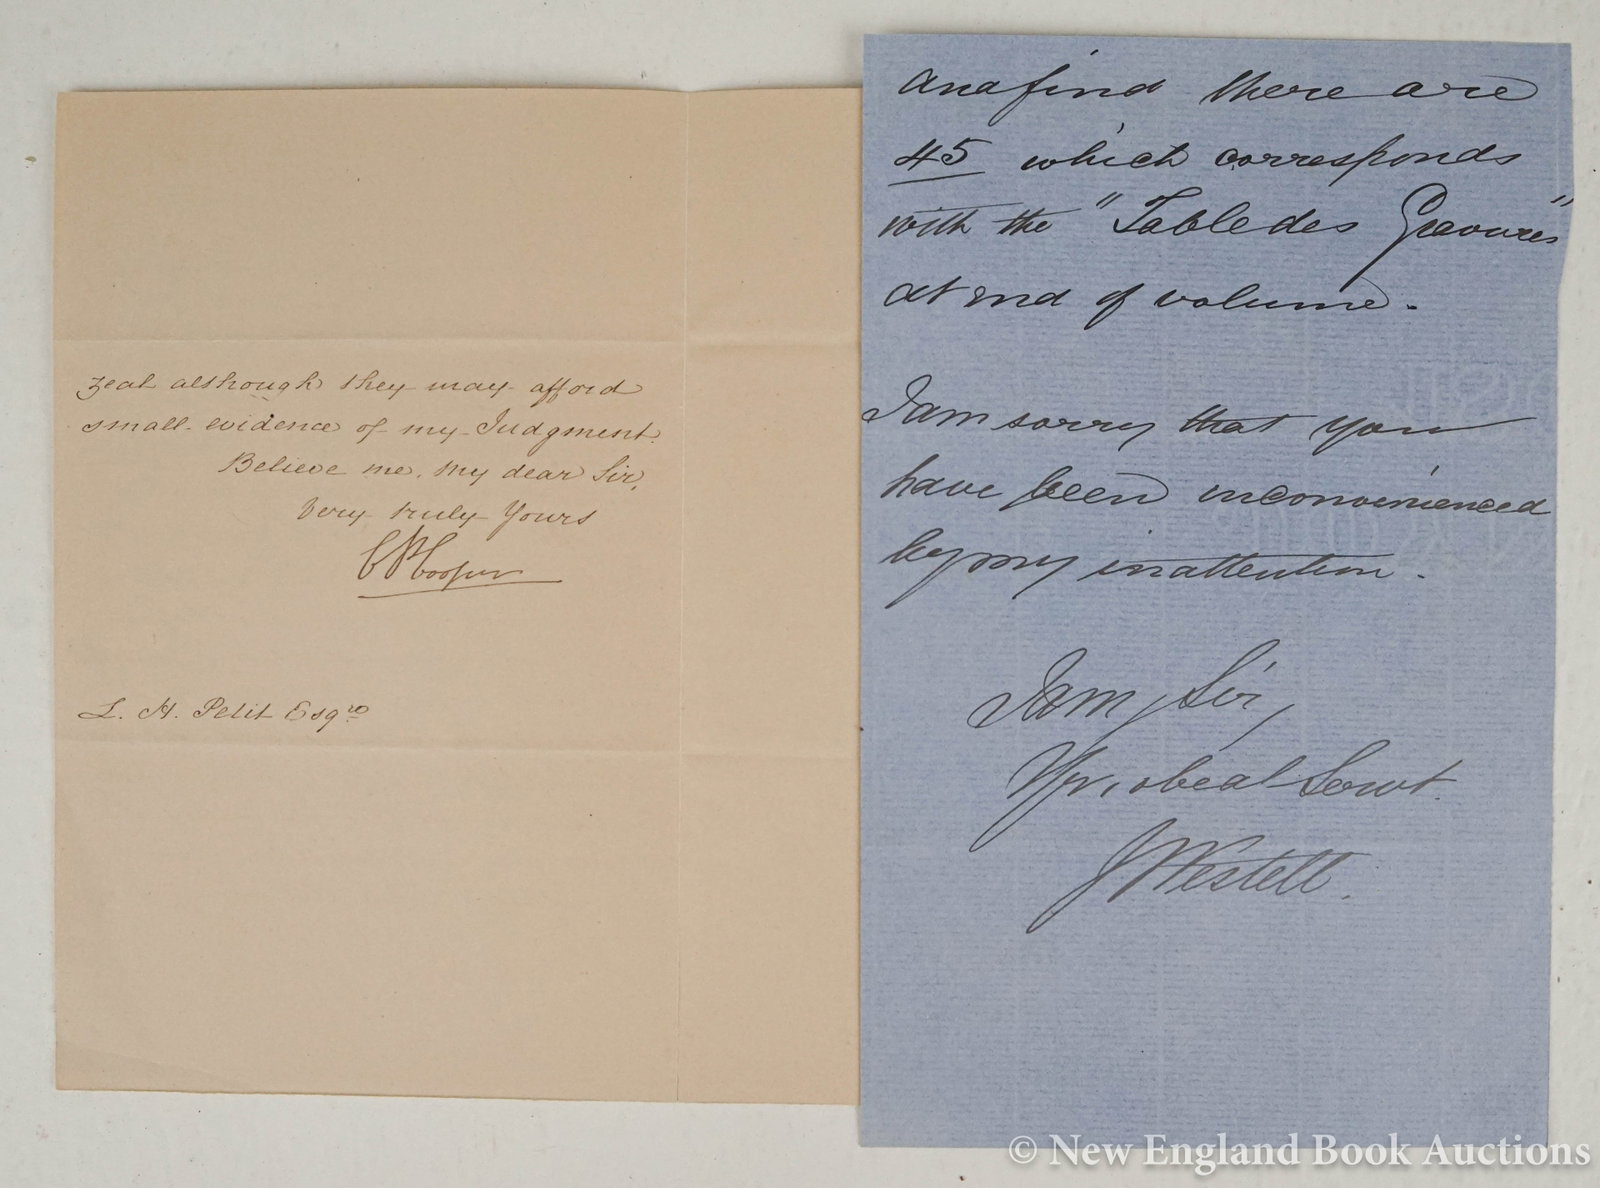 zeal although they may afford
small evidence of my Judgment.
Believe me, my dear Sir,
Very truly Yours
C P Cooper
L. H. Petit Esqre
and find there are
45 which corresponds
with the "Table des Gravures"
at end of volume.
I am sorry that you
have been inconvenienced
by my inattention.
I am, Sir,
Yr. obedt Servt.
J Westell.
© New England Book Auctions